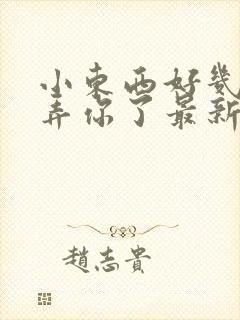 小東西好幾
弄你了最新
趙志貴